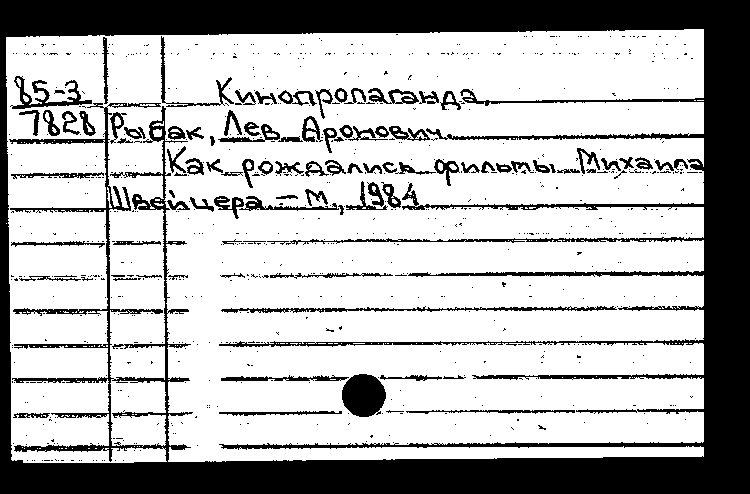 85-3 Кинопропаганда.
7828 Рыбак, Лев Аронович.
Как рождались фильмы Михаила
Швейцера. – М., 1984